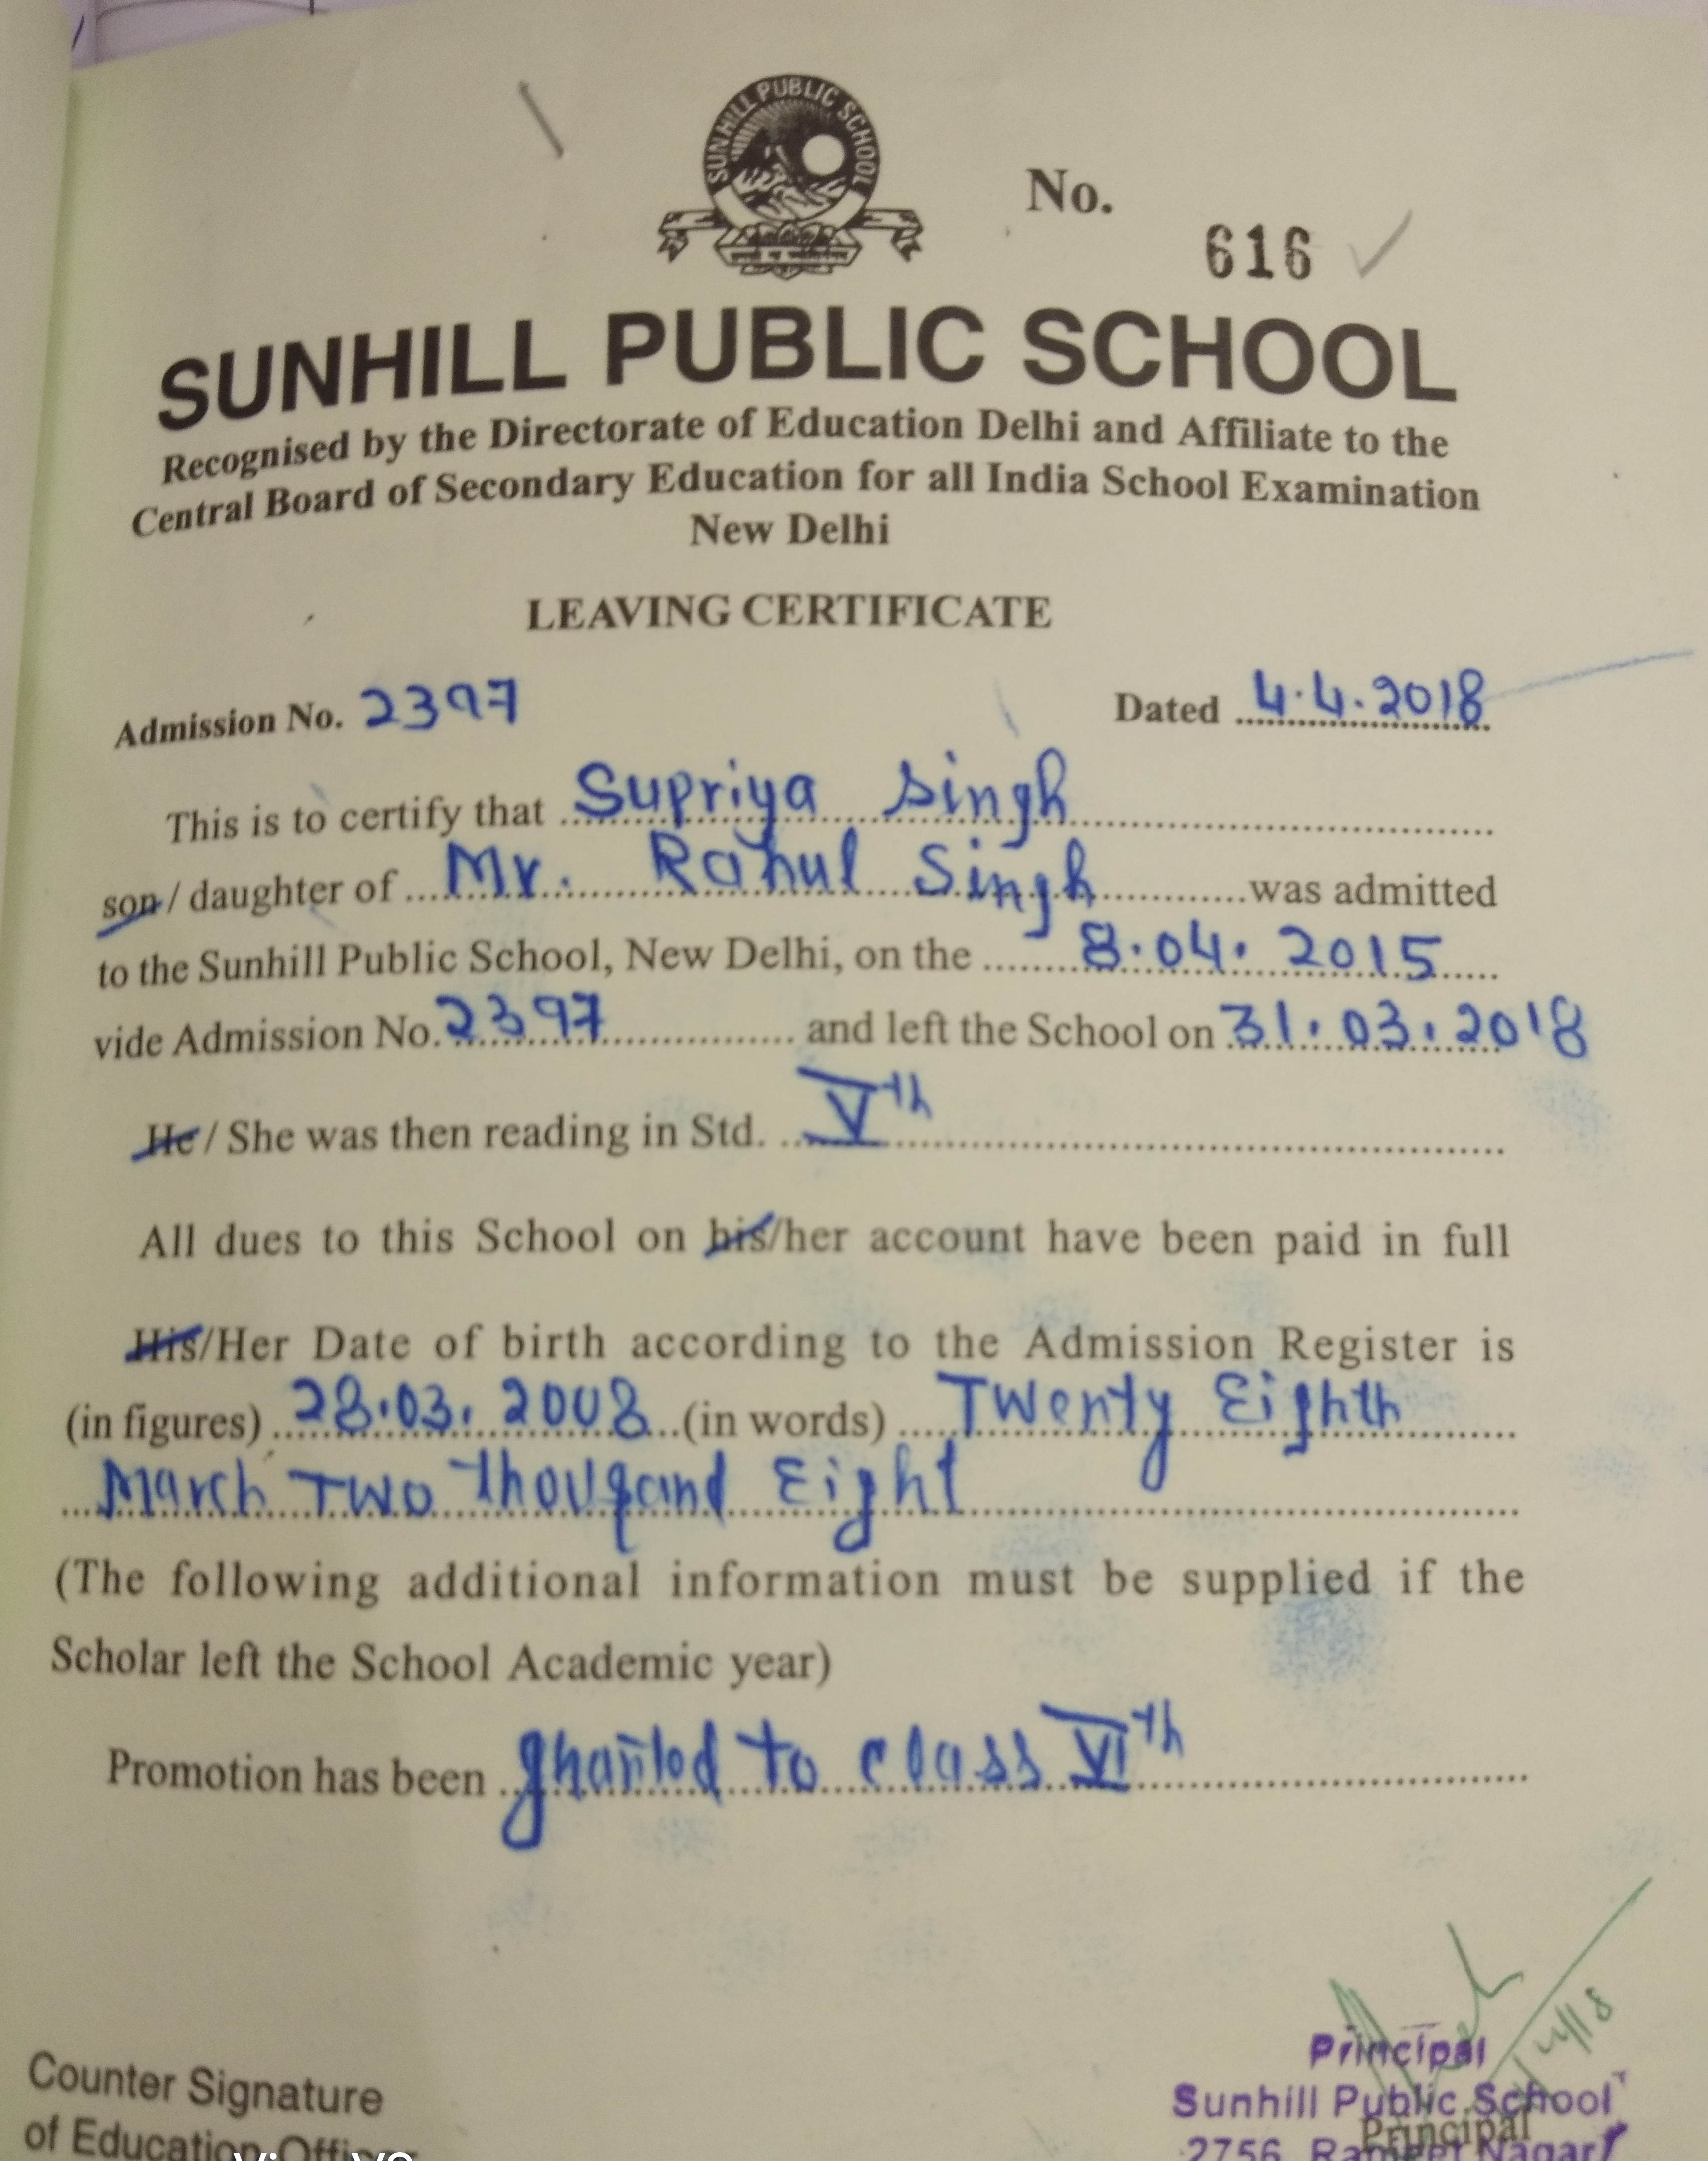 SUNHILL PUBLIC SCHOOL
No.
616
SUNHILL PUBLIC SCHOOL
Recognised by the Directorate of Education Delhi and Affiliate to the
Central Board of Secondary Education for all India School Examination
New Delhi
LEAVING CERTIFICATE
Admission No. 2397 Dated 4.4.2018
This is to certify that Supriya Singh
son / daughter of Mr. Rahul Singh was admitted
to the Sunhill Public School, New Delhi, on the 8.04.2015
vide Admission No. 2397 and left the School on 31.03.2018
He / She was then reading in Std. Vth
All dues to this School on his/her account have been paid in full
His/Her Date of birth according to the Admission Register is
(in figures) 28.03.2008 (in words) Twenty Eighth
March Two thousand Eight
(The following additional information must be supplied if the
Scholar left the School Academic year)
Promotion has been granted to class VIth
Counter Signature
of Education
Principal
Sunhill Public School
Principal
2756, Nagar